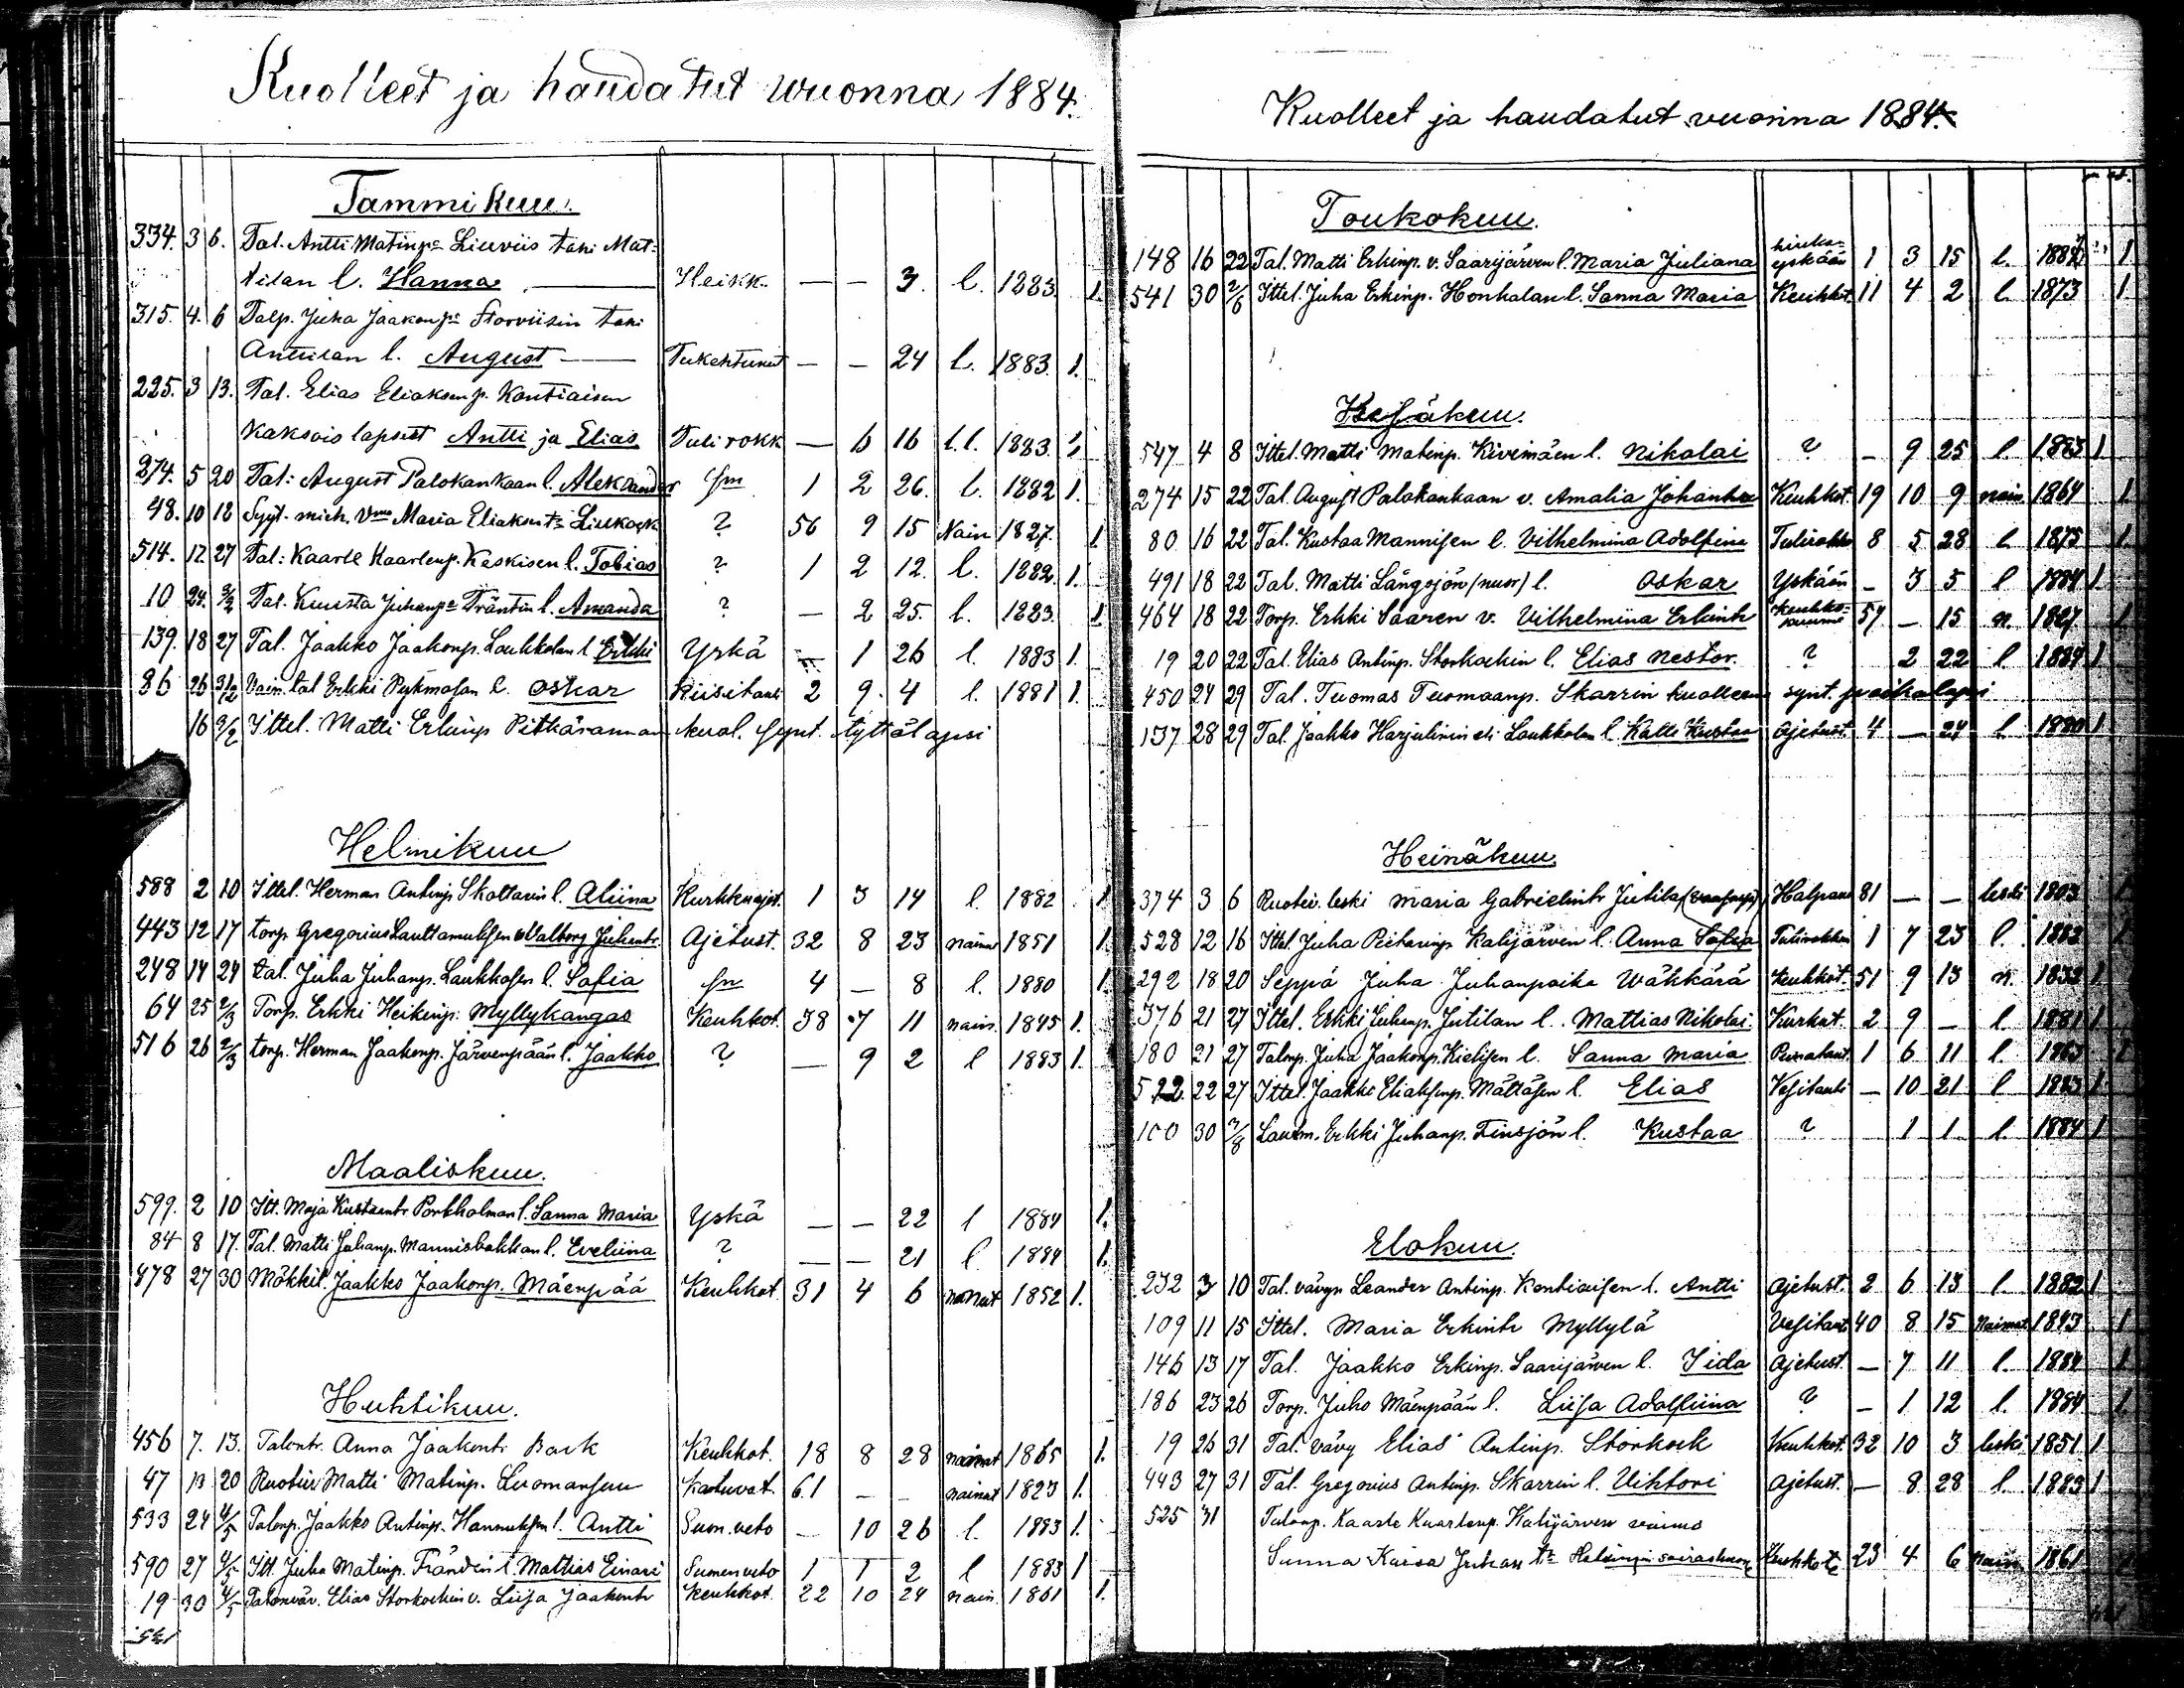 Kuolleet ja haudatut wuonna 1884.
Tammikuu.
334. 3 6. Tal. Antti Matinp. Liuviis taki Mat-
tilan l. Hanna Heikk. — — 3. l. 1883. 1.
315. 4. 6 Talp. Juha Jaakonp. Storviisin taki
Anttilan l. August Tukehtunut — — 24 l. 1883. 1.
225. 3 13. Tal. Elias Eliaksenp. Kontiaisen
Kaksoislapset Antti ja Elias Tulirokk — 6 16 l.l. 1883.
274. 5 20 Tal: August Palokankaan l. Aleksander Sm 1 2 26. l. 1882 1.
48. 10 12 Maria ? 56 9 15 Nain 1827. 1
514. 12 27 Tal: Kaarle Kaarlenp. Keskisen l. Tobias ? 1 2 12. l. 1882. 1.
10 24. 3/2 Tal. Kuusta Juhanp. Träntin l. Amanda ? — 2 25. l. 1883. 1
139. 18 27 Tal. Jaakko Jaakonp. Laukkolan l. Erkki Yskä — 1 26 l. 1883 1.
86 26 3/2 Vain. tal Erkki l. Oskar Riisitauti 2 9. 4 l. 1881 1.
16 3/2 Ittel. Matti Erkinp Pitkärannan kuol. synt. tyttölapsi
Helmikuu
588 2 10 Ittel. Herman Antinp Skottarin l. Aliina Kurkkuajet. 1 3 14 l. 1882 1
443 12 17 torp. Gregorius v Valborg Juhantr. Ajetust. 32 8 23 nainu 1851 1.
248 14 24 tal. Juha Juhanp. Laukkosen l. Sofia Sm 4 — 8 l. 1880 1.
64 25 2/3 Torp. Erkki Heikinp. Myllykangas Keuhkot. 38 7 11 nain. 1845 1.
516 26 2/3 torp. Herman Jaakonp. Järvenpään l. Jaakko ? — 9 2 l 1883 1.
Maaliskuu.
599. 2 10 Itt. Maja Kustaantr Porkholman l. Sanna Maria Yskä — — 22 l 1884 1.
84 8 17. Tal. Matti Juhanp. Mannisbakkan l. Eveliina ? — — 21 l. 1884 1.
478 27 30 Mökkil. Jaakko Jaakonp. Mäenpää Keuhkot 31 4 6 1852 1.
Huhtikuu.
456 7. 13. Talontr. Anna Jaakontr Back Keuhkot. 18 8 28 naimat 1865 1.
47 13 20 Ruotiv Matti Matinp. Luomansuu Katuvat. 61 — — nainut 1823 1.
533 24 4/5 Talonp. Jaakko Antinp. Hannuksen l. Antti Suon.veto — 10 26 l. 1883 1.
590 27 4/5 Itt. Juha Matinp. Frändin l. Mattias Einari Suonenveto 1 1 2 l 1883 1
19 30 4/5 Talonväv. Elias Storkockin v. Liisa Jaakontr Keuhkot. 22 10 24 nain. 1861 1.
541
Kuolleet ja haudatut vuonna 1884.
Toukokuu.
148 16 22 Tal. Matti Erkinp. v. Saarijärven l. Maria Juliana hinku-yskään 1 3 15 l. 1884 1.
541 30 2/6 Ittel. Juha Erkinp. Honkalan l. Sanna Maria Keuhkot. 11 4 2 l 1873 1
Kesäkuu.
547 4 8 Ittel. Matti Matinp. Kivimäen l. Nikolai ? — 9 25 l. 1883 1
274 15 22 Tal. August Palokankaan v. Amalia Johanna Keuhkot. 19 10 9 nain. 1864 1
80 16 22 Tal. Kustaa Mannisen l. Vilhelmina Adolfina Tulirokko 8 5 28 l 1875 1
491 18 22 Tal. Matti Långsjön (nuor) l. Oskar Yskään — 3 5 l 1884 1
464 18 22 Torp. Erkki Saaren v. Vilhelmiina Erkintr Keuhko-kuume 57 — 15 n. 1827 1
19 20 22 Tal. Elias Antinp. Storkockin l. Elias Nestor. ? 2 22 l 1884 1
450 24 29 Tal. Tuomas Tuomaanp. Skarrin kuolleena synt. poikalapsi
137 28 29 Tal. Jaakko Harjulinin eli Laukkolan l. Kalle Kustaa Ajetust. 4 — 24 l 1880 1
Heinäkuu.
374 3 6 Ruotiv. leski Maria Gabrielintr Jutila Halpaus 81 — — leski 1803 1
528 12 16 Ittel Juha Pietarinp Kalijärven l. Anna Sofia Tulirokkon 1 7 23 l. 1882 1
292 18 20 Seppä Juha Juhanpoika Wäkkärä Keuhkot. 51 9 13 n. 1832 1
376 21 27 Ittel. Erkki Juhanp. Jutilan l. Mattias Nikolai Kurkut. 2 9 — l. 1881 1
180 21 27 Talonp. Juha Jaakonp. Kielisen l. Sanna Maria Punataut. 1 6 11 l. 1
522. 22 27 Ittel. Jaakko Eliaksenp. Mättäsen l. Elias Vesitauti — 10 21 l 1883 1
100 30 3/8 Lautm. Erkki Juhanp. Finsjön l. Kustaa ? 1 1 l. 1884 1
Elokuu.
232 3 10 Tal. vävyn Leander Antinp. Kontiaisen l. Antti Ajetust. 2 6 13 l. 1882 1
109 11 15 Ittel. Maria Erkintr Myllylä Vesitaut. 40 8 15 Naimat. 1843 1
146 13 17 Tal. Jaakko Erkinp. Saarijärven l. Iida Ajetust. — 7 11 l. 1884 1
186 23 26 Torp. Juho Mäenpään l. Liisa Adolfiina ? — 1 12 l. 1884 1
19 26 31 Tal. vävy Elias Antinp. Storkock Keuhkot. 32 10 3 leski 1851 1
443 27 31 Tal. Gregorius Antinp. Skarrin l. Vihtori Ajetust. — 8 28 l. 1883 1
525 31 Talonp. Kaarle Kaarlenp. Kalijärven vaimo
Sanna Kaisa Juhantr Helsingin sairashuone Keuhkot. 23 4 6 nain. 1861 1